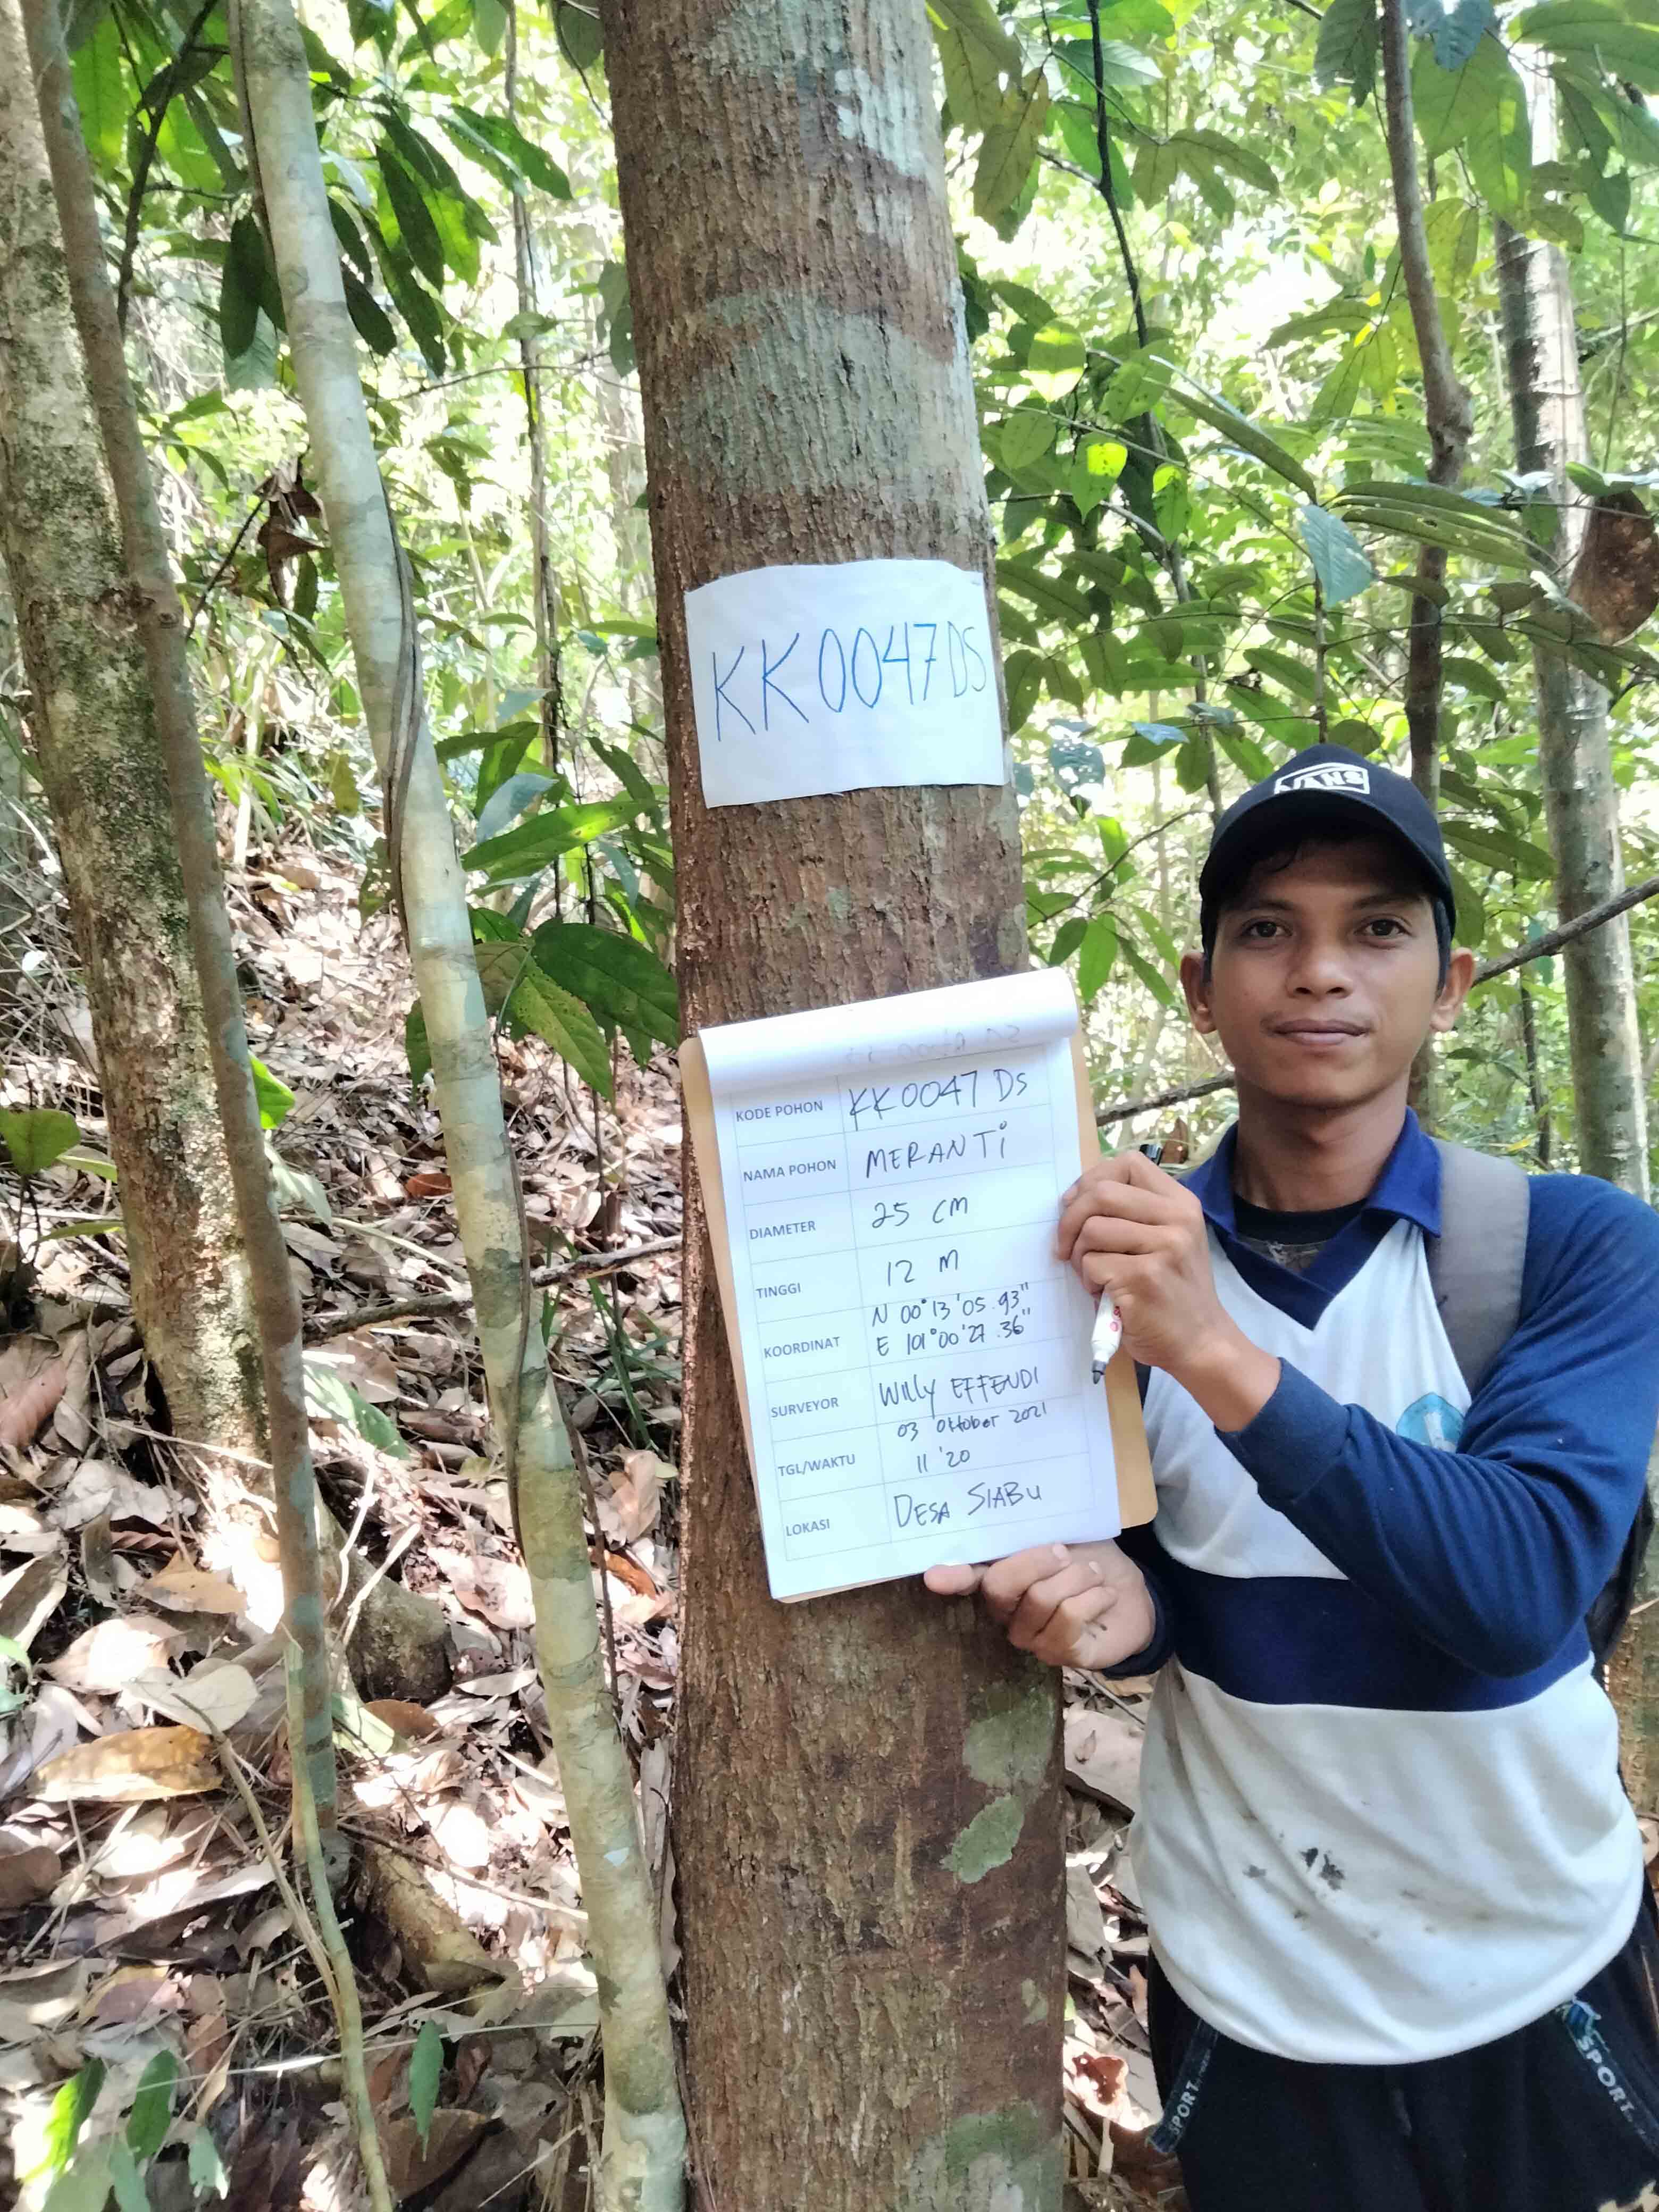 KK0047DS
VANS
KODE POHON KK0047 DS
NAMA POHON MERANTi
DIAMETER 25 CM
TINGGI 12 M
KOORDINAT N 00°13'05.93"
E 101°00'27.36"
SURVEYOR WillY EFFENDI
TGL/WAKTU 03 Oktober 2021
11'20
LOKASI DESA SIABU
SPORT
SPORT